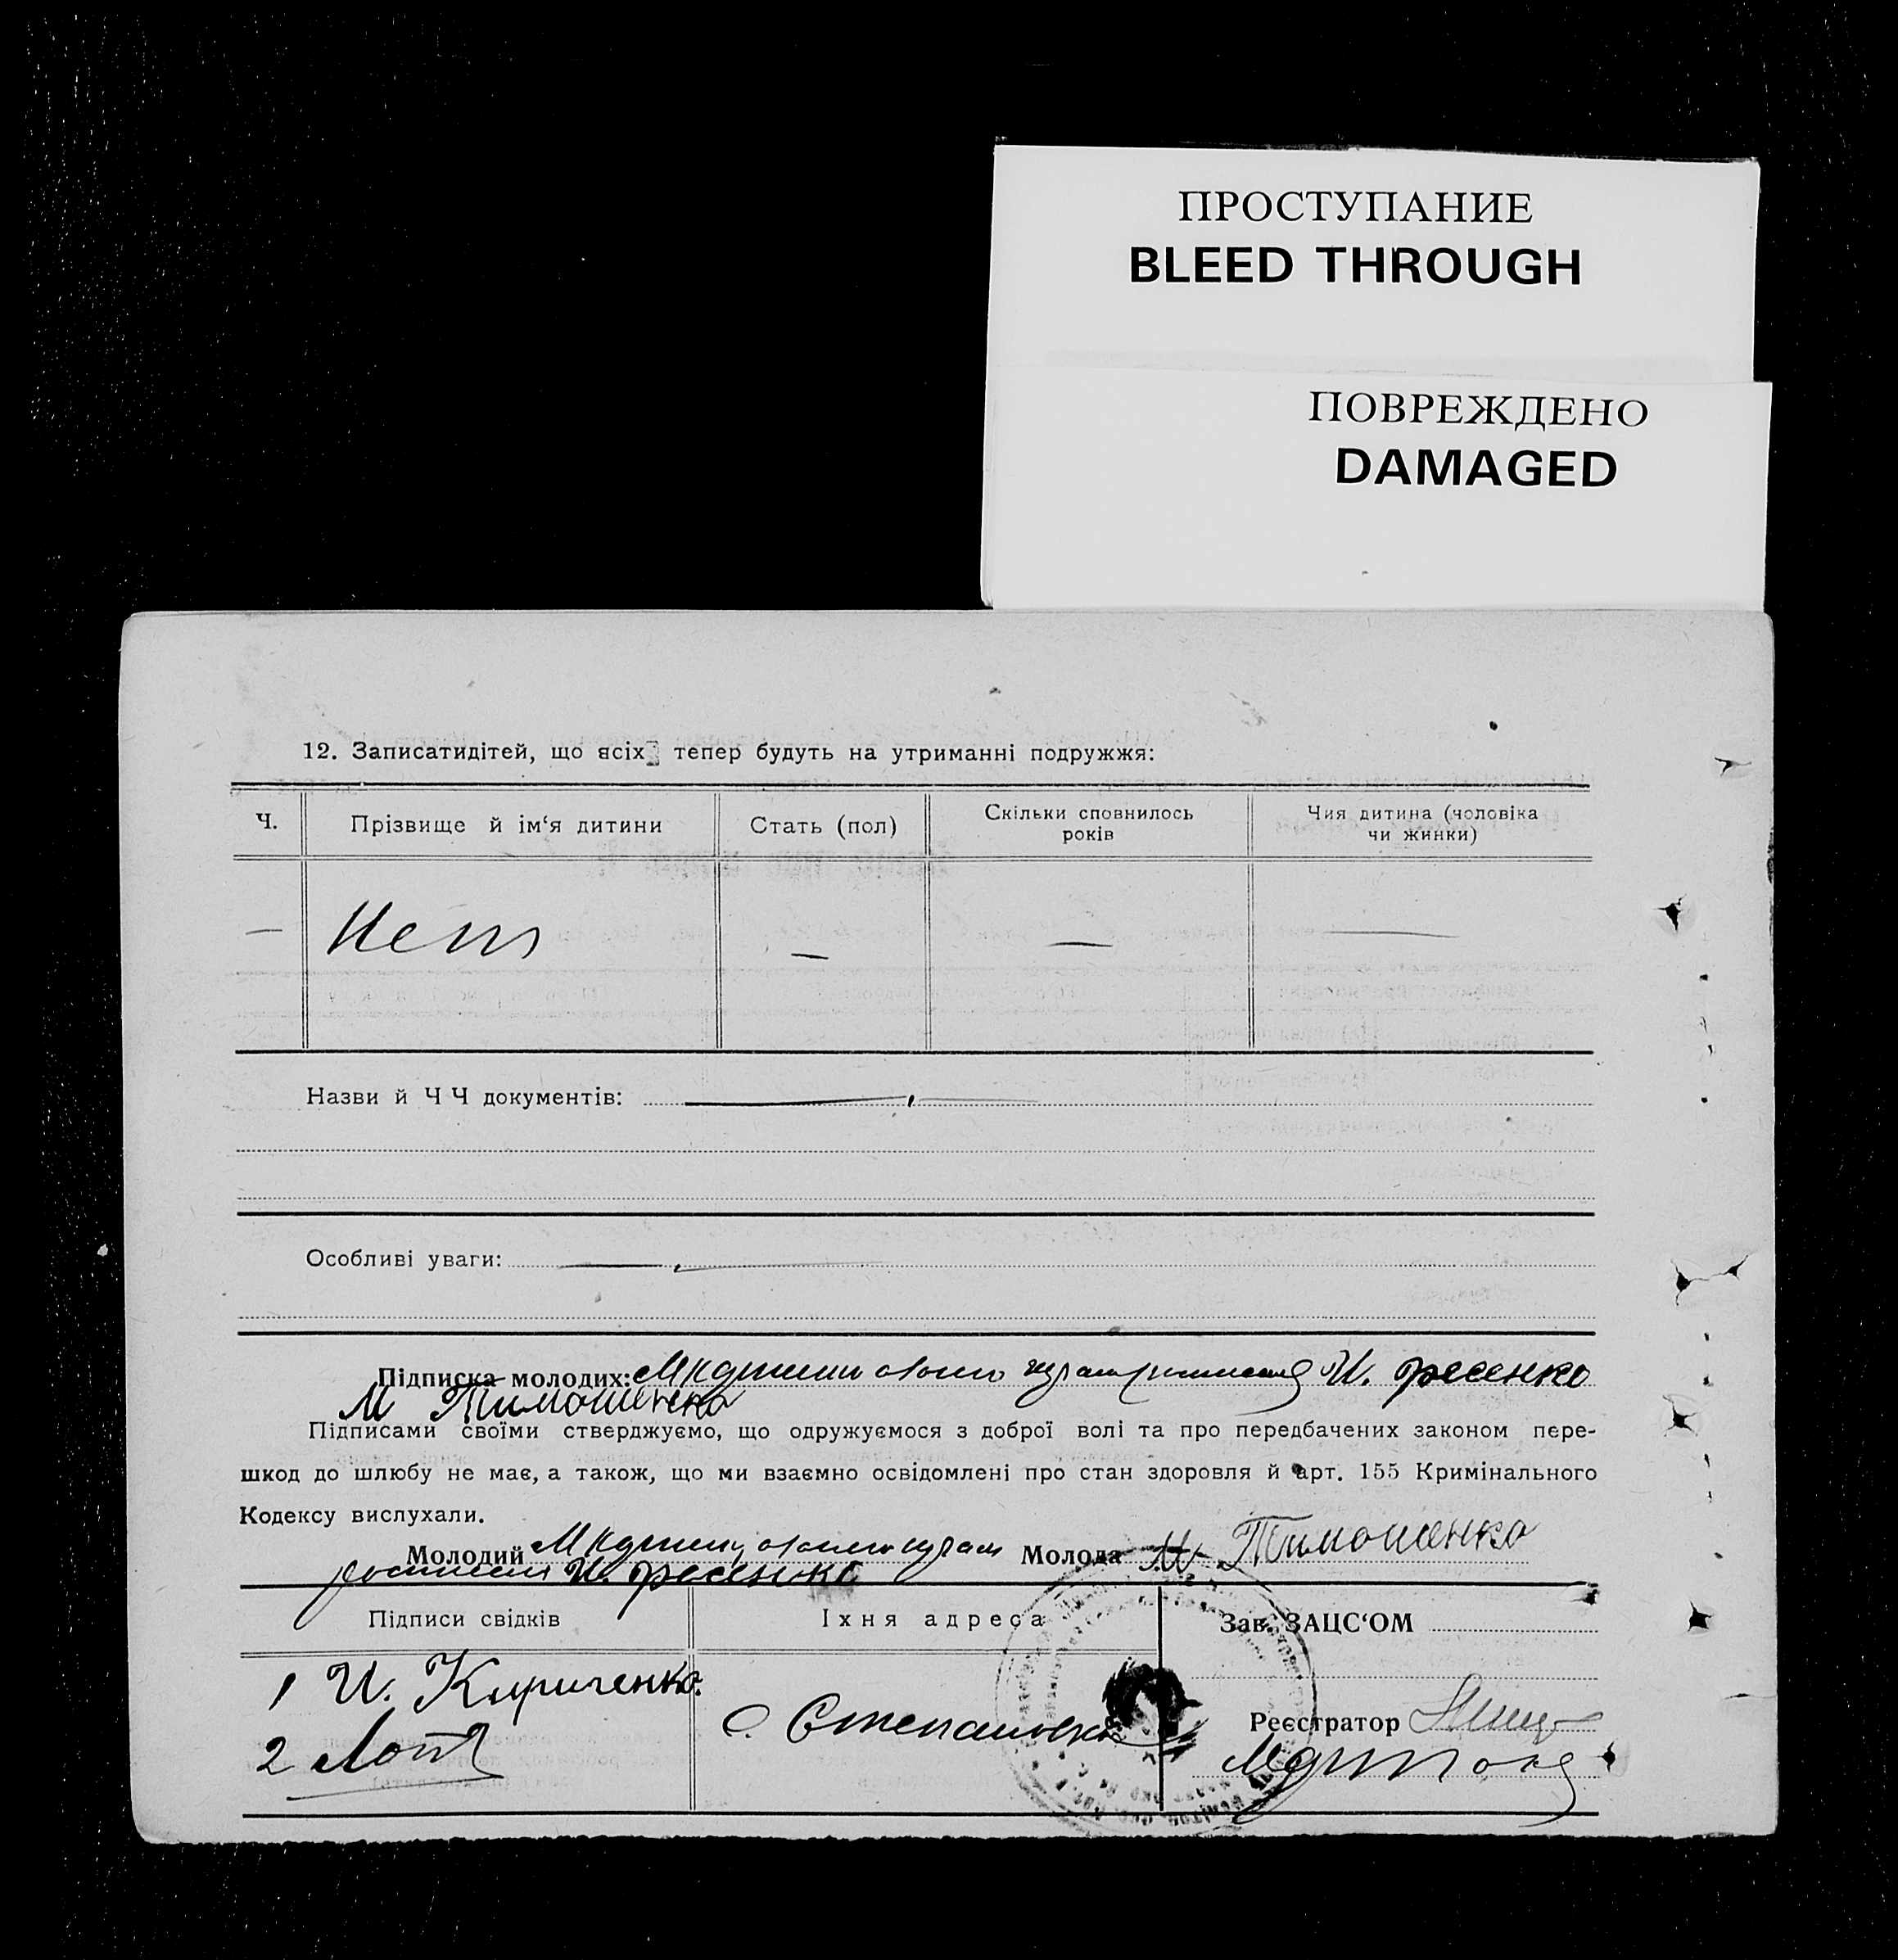 ПРОСТУПАНИЕ
BLEED THROUGH
ПОВРЕЖДЕНО
DAMAGED
12. Записатидітей, що всіх тепер будуть на утриманні подружжя:
Ч. Прізвище й ім‘я дитини Стать (пол) Скільки сповнилось років Чия дитина (чоловіка чи жинки)
— Нет — — —
Назви й Ч Ч документів: —
Особливі уваги: —
Підписка молодих: И. Фесенко
М Тимошенко
Підписами своїми стверджуємо, що одружуємося з доброї волі та про передбачених законом пере-
шкод до шлюбу не має, а також, що ми взаємно освідомлені про стан здоровля й арт. 155 Кримінального
Кодексу вислухали.
Молодий Молода М Тимошенко
И. Фесенко
Підписи свідків Їхня адреса Зав. ЗАЦС‘ОМ
1 И. Кириченко.
с. Степановка Реєстратор
2